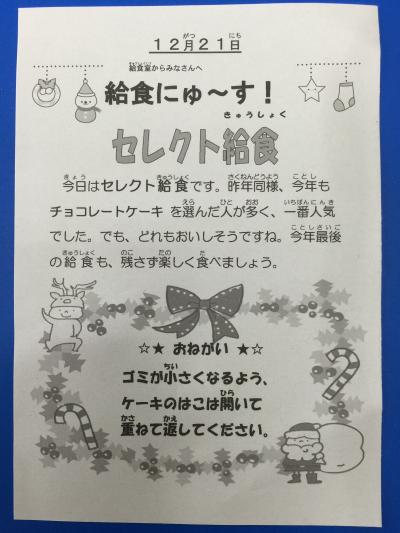 12月21日
給食室からみなさんへ
給食にゅ～す！
セレクト給食
今日はセレクト給食です。昨年同様、今年も
チョコレートケーキ を選んだ人が多く、一番人気
でした。でも、どれもおいしそうですね。今年最後
の給食も、残さず楽しく食べましょう。
☆★ おねがい ★☆
ゴミが小さくなるよう、
ケーキのはこは開いて
重ねて返してください。